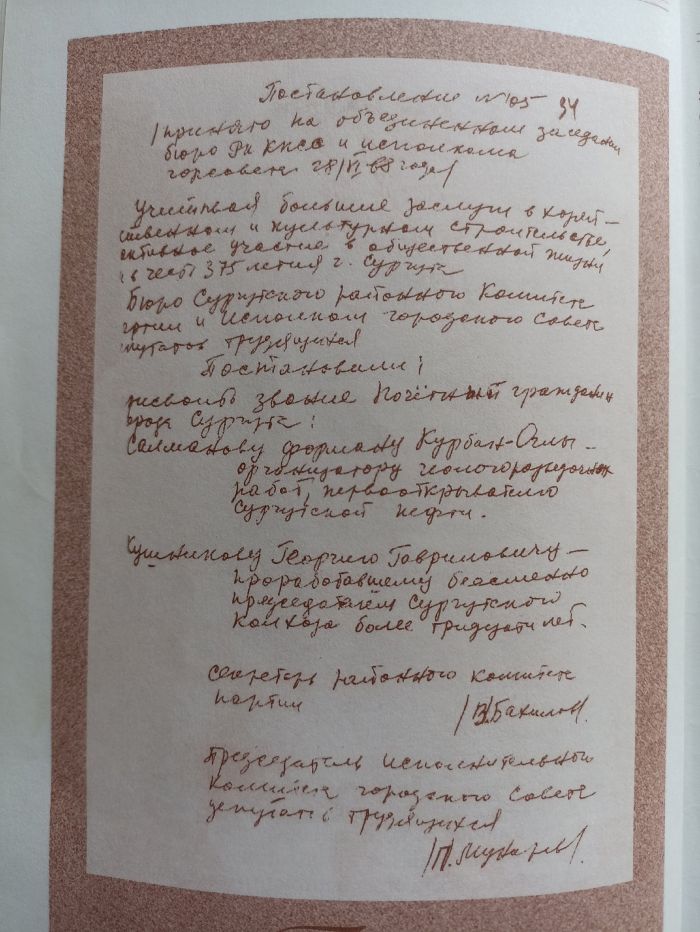 Постановление №105 34
/принято на объединенном заседании
бюро РК КПСС и исполкома
горсовета 28/VI 68 года/
Учитывая большие заслуги в хозяй-
ственном и культурном строительстве,
активное участие в общественной жизни
и в честь 375 летия г. Сургута
Бюро Сургутского районного Комитета
партии и Исполком городского Совета
депутатов трудящихся
Постановили:
присвоить звание Почётный гражданин
города Сургута:
Салманову Форману Курбан-Оглы -
организатору геологоразведочных
работ, первооткрывателю
Сургутской нефти.
Кушникову Георгию Гавриловичу -
проработавшему бессменно
председателем Сургутского
колхоза более тридцати лет.
Секретарь районного комитета
партии /В. Бахилов/.
Председатель исполнительного
комитета городского Совета
депутатов трудящихся
/П. Мунарев/.